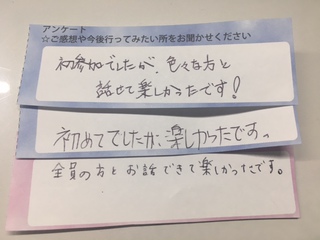 アンケート
☆ご感想や今後行ってみたい所をお聞かせください
初参加でしたが、色々な方と
話せて楽しかったです!
初めてでしたが、楽しかったですっ
全員の方とお話できて楽しかったです。